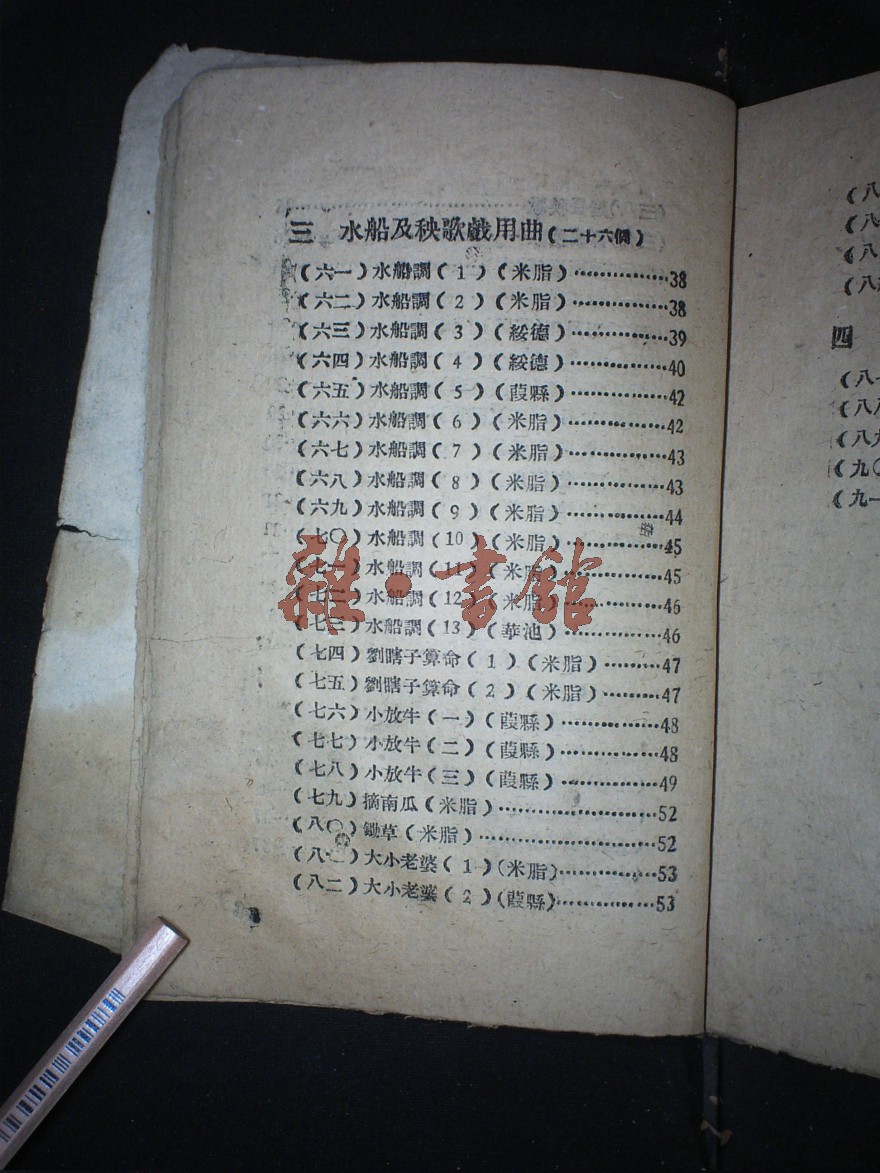 三　水船及秧歌戲用曲(二十六個)
(六一)水船調(1)(米脂)················38
(六二)水船調(2)(米脂)················38
(六三)水船調(3)(綏德)················39
(六四)水船調(4)(綏德)················40
(六五)水船調(5)(葭縣)················42
(六六)水船調(6)(米脂)················42
(六七)水船調(7)(米脂)················43
(六八)水船調(8)(米脂)················43
(六九)水船調(9)(米脂)················44
(七〇)水船調(10)(米脂)···············45
(七一)水船調(11)(米脂)···············45
(七二)水船調(12)(米脂)···············46
(七三)水船調(13)(華池)···············46
(七四)劉瞎子算命(1)(米脂)·········47
(七五)劉瞎子算命(2)(米脂)·········47
(七六)小放牛(一)(葭縣)···············48
(七七)小放牛(二)(葭縣)···············48
(七八)小放牛(三)(葭縣)···············49
(七九)摘南瓜(米脂)························52
(八〇)鋤草(米脂)···························52
(八一)大小老婆(1)(米脂)···············53
(八二)大小老婆(2)(葭縣)···············53
雜·書館
(八
(八
(八
(八
四
(八
(八八
(八九
(九〇
(九一